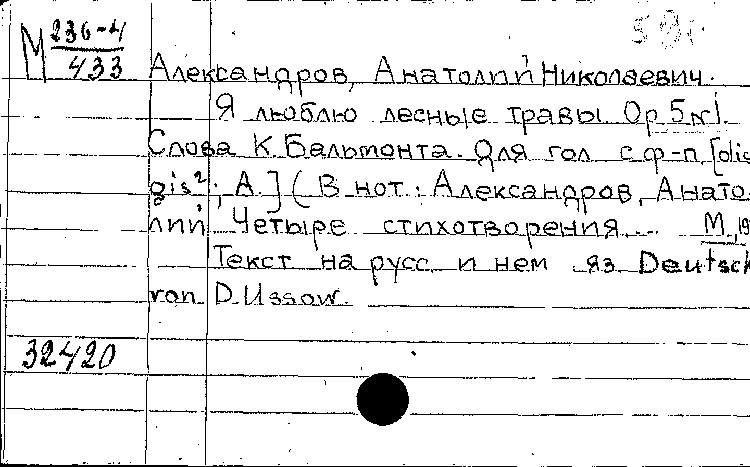 М 236-4
433
Александров, Анатолий Николаевич.
Я люблю лесные травы Op. 5 №1.
Слова К. Бальмонта. Для гол с ф-п. [dis
gis²; А.] (В нот.: Александров, Анато-
лий. Четыре стихотворения... М., 19
Текст на русс и нем яз. Deutsch
von D. Ussow.
32420